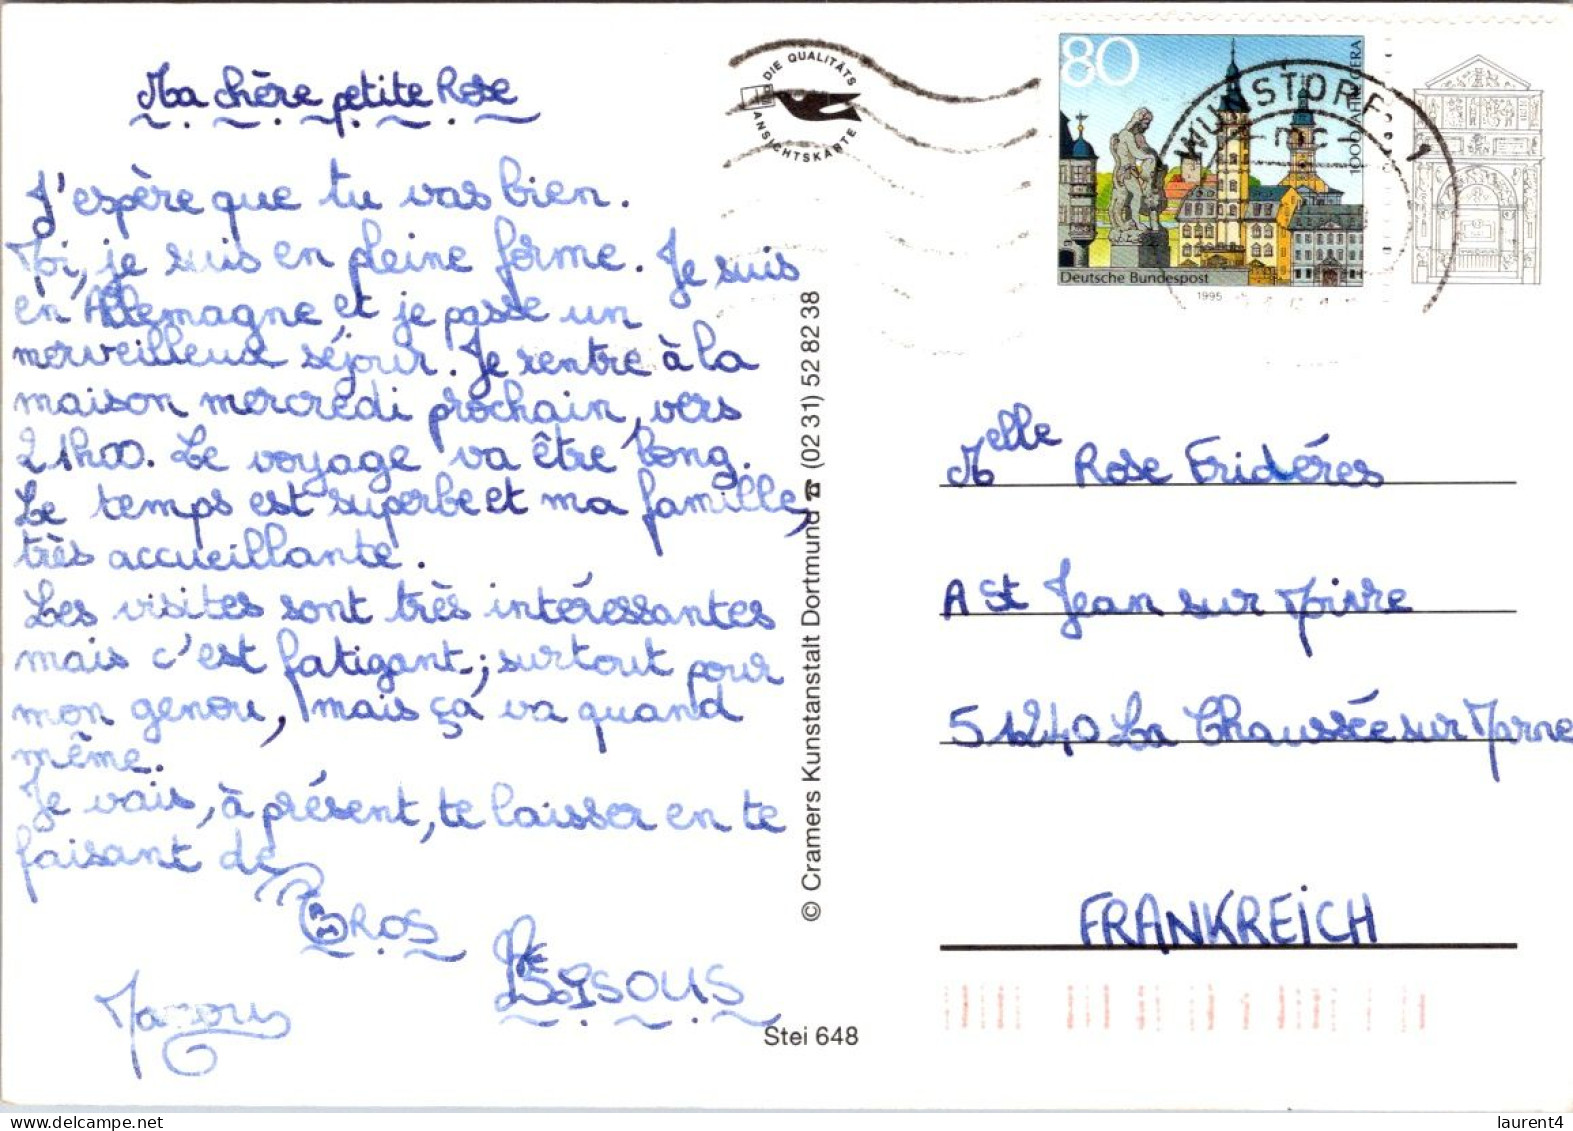 Ma chère petite Rose
J'espère que tu vas bien.
Moi, je suis en pleine forme. Je suis
en Allemagne, et je passe un
merveilleux séjour. Je rentre à la
maison mercredi prochain, vers
21h00. Le voyage va être long.
Le temps est superbe et ma famille,
très accueillante.
Les visites sont très intéressantes
mais c'est fatigant ; surtout pour
mon genou, mais ça va quand
même.
Je vais, à présent, te laisser en te
faisant de
GROS
BISOUS
DIE QUALITÄTS
ANSICHTSKARTE
© Cramers Kunstanstalt Dortmund ☎ (02 31) 52 82 38
Stei 648
80
1000 JAHRE GERA
Deutsche Bundespost
1995
WUNSTORF 1
mc
Melle Rose Fridéres
A St Jean sur Moivre
51240 La Chaussée sur Marne
FRANKREICH
laurent4